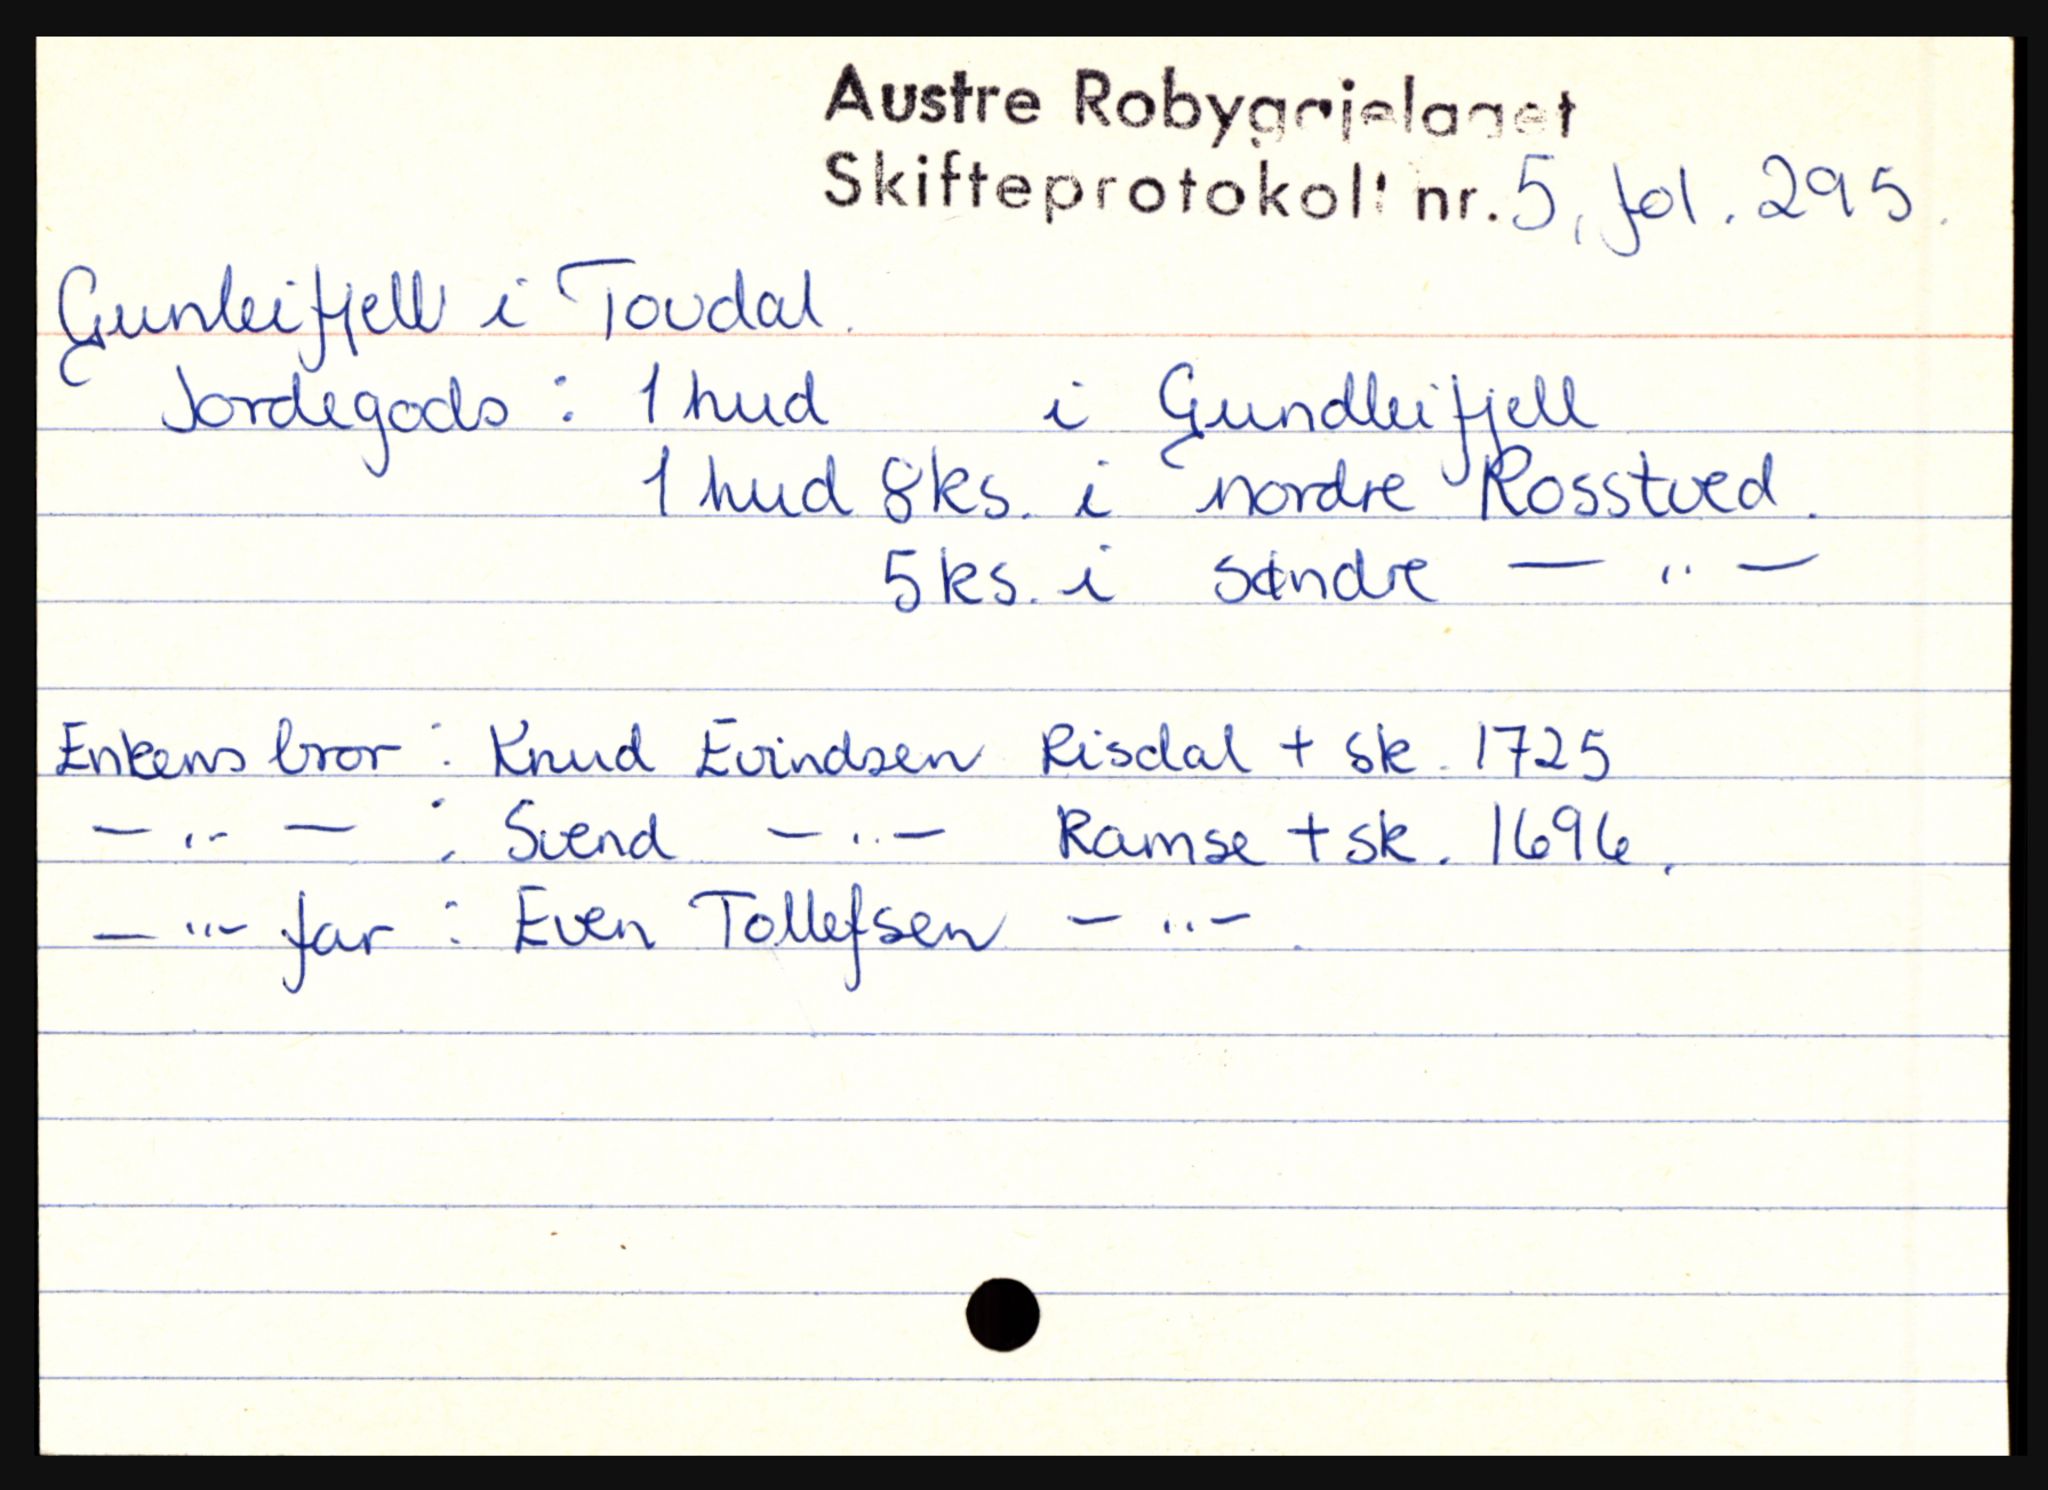 Austre Robyggjelaget
Skifteprotokoll nr. 5, fol. 295.
Gunleifjell i Tovdal.
Jordegods : 1 hud i Gundleifjell
1 hud 8 ks. i nordre Rosstved.
5 ks. i søndre — " —
Enkens bror : Knud Evindsen Risdal + sk. 1725
— " — : Svend — " — Ramse + sk. 1696.
— " — far : Even Tollefsen — " — .